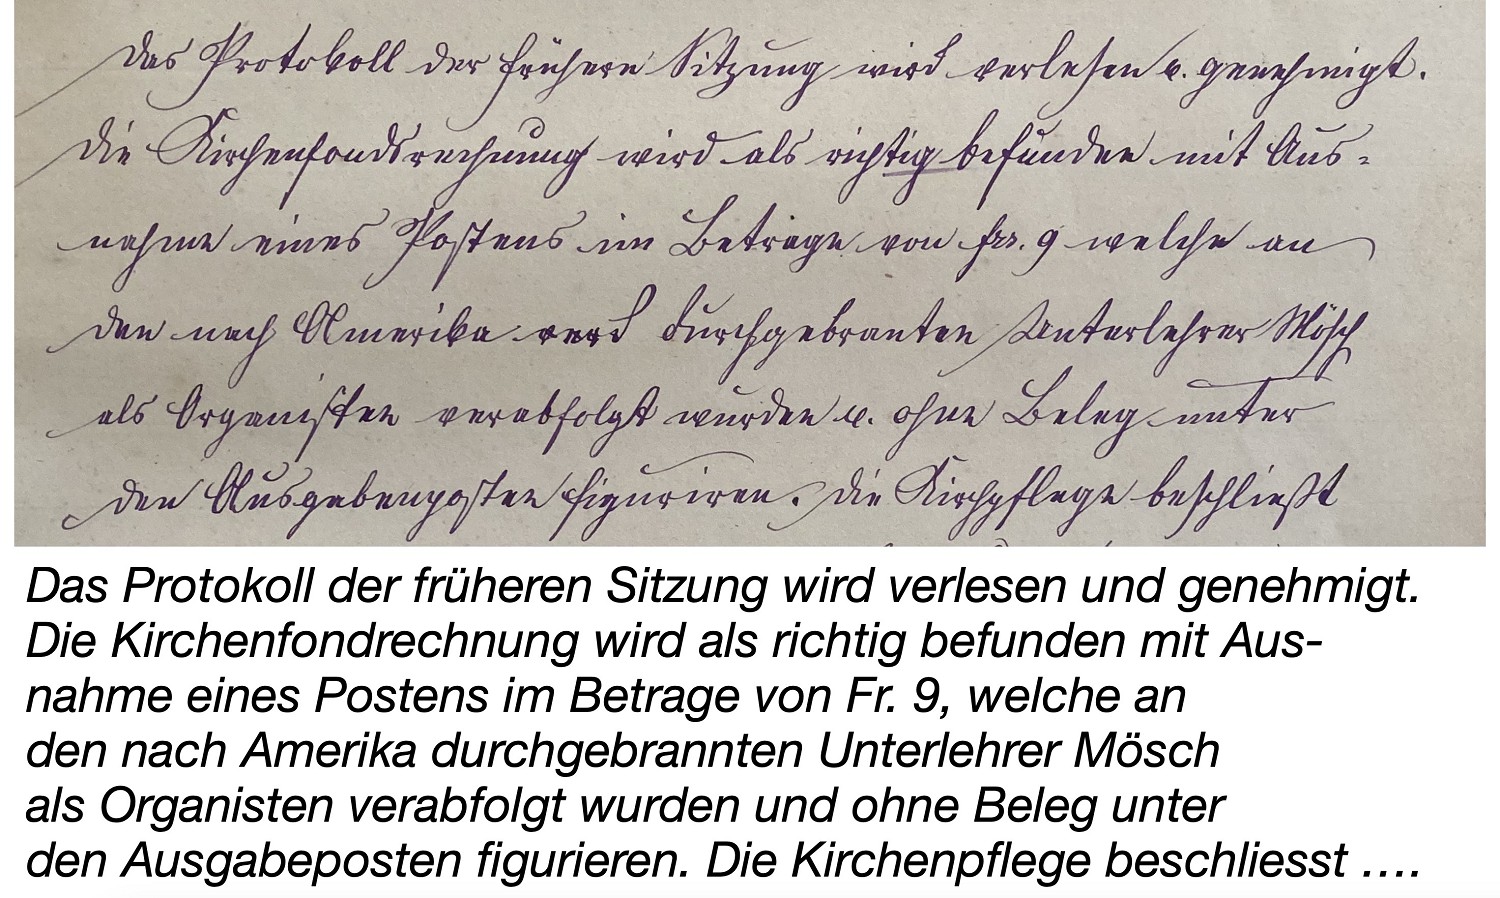 Das Protokoll der frühern Sitzung wird verlesen u. genehmigt.
Die Kirchenfondsrechnung wird als richtig befunden mit Aus-
nahme eines Postens im Betrage von frs. 9 welche an
den nach Amerika durchgebranten Unterlehrer Mösch
als Organisten verabfolgt wurden u. ohne Beleg unter
den Ausgabenposten figuriren. Die Kirchpflege beschließt
Das Protokoll der früheren Sitzung wird verlesen und genehmigt.
Die Kirchenfondrechnung wird als richtig befunden mit Aus-
nahme eines Postens im Betrage von Fr. 9, welche an
den nach Amerika durchgebrannten Unterlehrer Mösch
als Organisten verabfolgt wurden und ohne Beleg unter
den Ausgabeposten figurieren. Die Kirchenpflege beschliesst ....